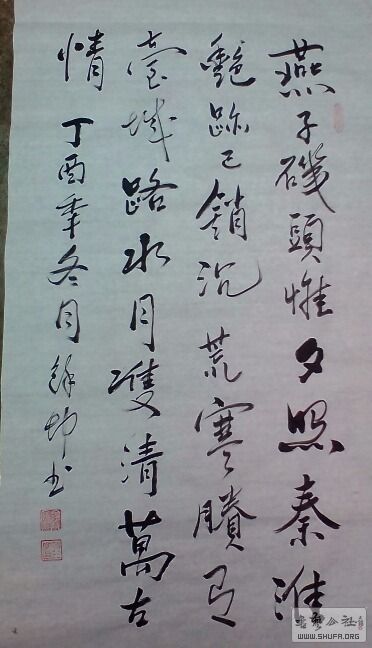 燕子磯頭惟夕照秦淮
艷跡已銷沉荒寒賸有
臺城路水月雙清萬古
情 丁酉年冬月 书
书艺公社
WWW.SHUFA.ORG